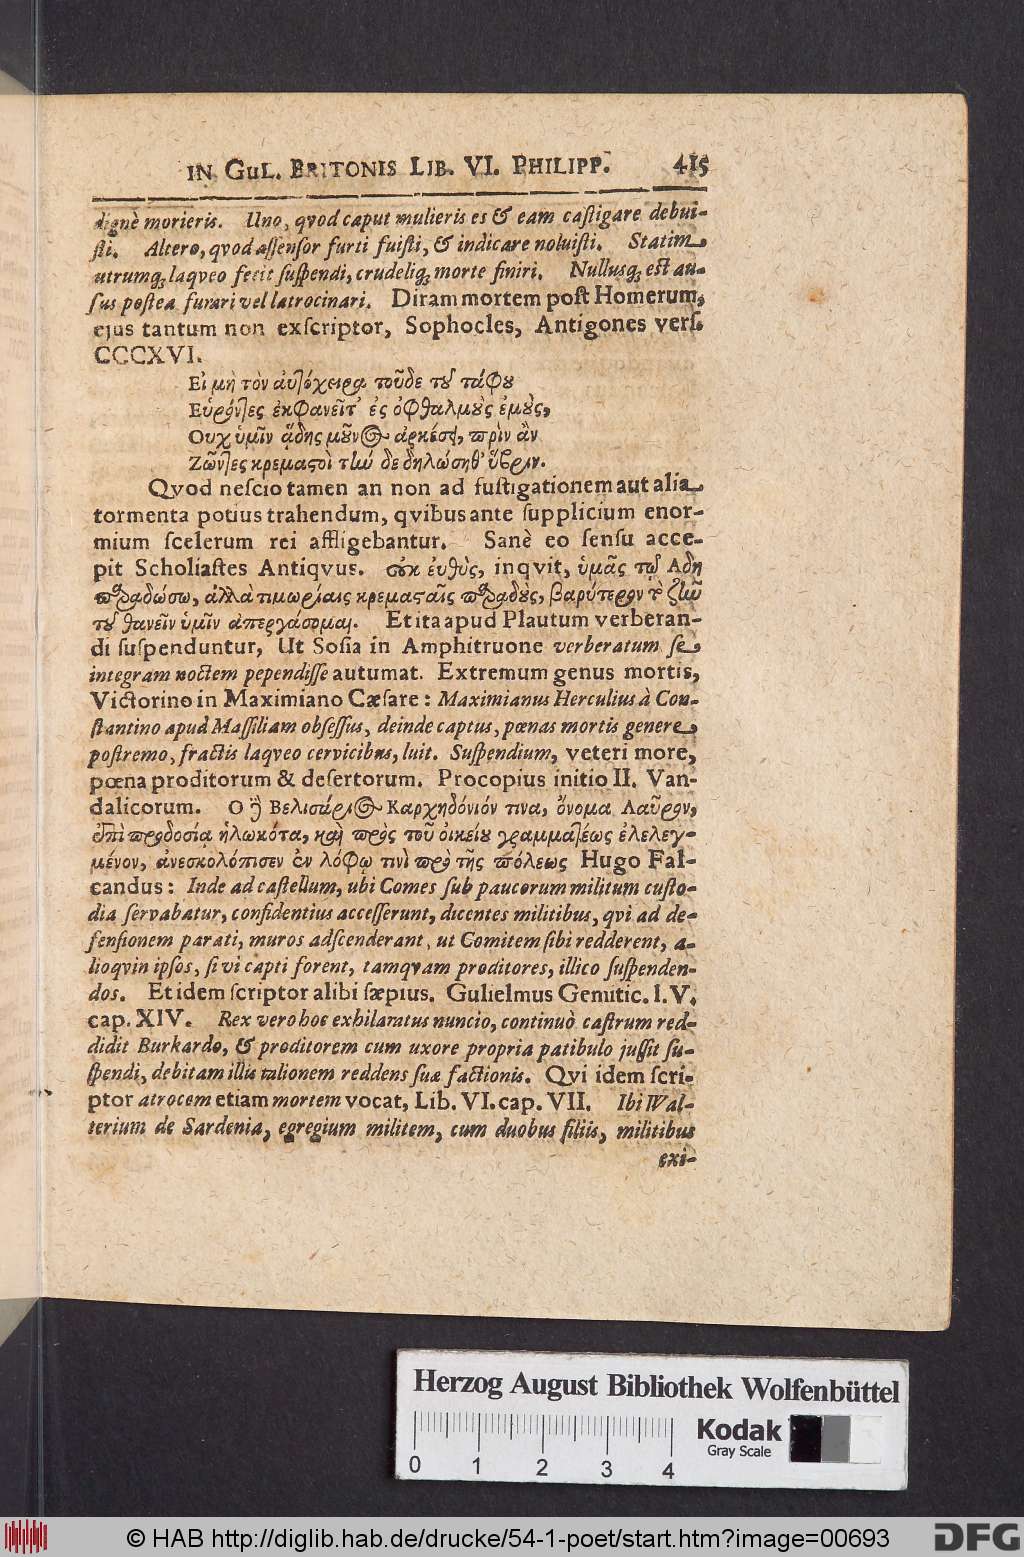 IN GUL. BRITONIS LIB. VI. PHILIPP. 415
dignè morieris. Uno, qvod caput mulieris es & eam caſtigare debui-
ſti. Altero, qvod aſſenſor furti fuiſti, & indicare noluiſti. Statim
utrumq; laqveo fecit ſuſpendi, crudeliq; morte finiri. Nullusq; eſt au-
ſus poſtea furari vel latrocinari. Diram mortem poſt Homerum,
ejus tantum non exſcriptor, Sophocles, Antigones verſ.
CCCXVI.
Εἰ μὴ τὸν αὐτόχειρα τοῦδε τοῦ τάφου
Εὑρόντες ἐκφανεῖτ' ἐς ὀφθαλμοὺς ἐμοὺς,
Ουχ ὑμῖν ᾅδης μοῦνος ἀρκέσει, πρὶν ἂν
Ζῶντες κρεμαστοὶ τὴν δε δηλώσηθ' ὕβριν.
Qvod neſcio tamen an non ad fuſtigationem aut alia
tormenta potius trahendum, qvibus ante ſupplicium enor-
mium ſcelerum rei affligebantur. Sanè eo ſenſu acce-
pit Scholiaſtes Antiqvus. οὐκ ἐυθὺς, inqvit, ὑμᾶς τῷ Αδη
παραδώσω, ἀλλὰ τιμωρίαις κρεμασταῖς παραδοὺς, βαρύτερον τὸ ζῆν
τοῦ θανεῖν ὑμῖν ἀπεργάσομαι. Et ita apud Plautum verberan-
di ſuſpenduntur, Ut Soſia in Amphitruone verberatum ſe
integram noctem pependiſſe autumat. Extremum genus mortis,
Victorino in Maximiano Cæſare: Maximianus Herculius à Con-
ſtantino apud Maſſiliam obſeſſus, deinde captus, pœnas mortis genere
poſtremo, fractis laqveo cervicibus, luit. Suſpendium, veteri more,
pœna proditorum & deſertorum. Procopius initio II. Van-
dalicorum. Ο δὲ Βελισάριος Καρχηδόνιόν τινα, ὄνομα Λαῦρον,
ἐπὶ προδοσίᾳ ἡλωκότα, καὶ πρὸς τοῦ οἰκείου γραμματέως ἐλελεγ-
μένον, ἀνεσκολόπισεν ἐν λόφῳ τινὶ πρὸ τῆς πόλεως Hugo Fal-
candus: Inde ad caſtellum, ubi Comes ſub paucorum militum cuſto-
dia ſervabatur, confidentius acceſſerunt, dicentes militibus, qvi ad de-
fenſionem parati, muros adſcenderant, ut Comitem ſibi redderent, a-
lioqvin ipſos, ſi vi capti forent, tamqvam proditores, illico ſuſpenden-
dos. Et idem ſcriptor alibi ſæpius. Gulielmus Gemitic. l. V.
cap. XIV. Rex vero hoc exhilaratus nuncio, continuò caſtrum red-
didit Burkardo, & proditorem cum uxore propria patibulo juſſit ſu-
ſpendi, debitam illis talionem reddens ſuæ factionis. Qvi idem ſcri-
ptor atrocem etiam mortem vocat, Lib. VI. cap. VII. Ibi Wal-
terium de Sardenia, egregium militem, cum duobus filiis, militibus
exi-
Herzog August Bibliothek Wolfenbüttel
Kodak
Gray Scale
0 1 2 3 4
© HAB http://diglib.hab.de/drucke/54-1-poet/start.htm?image=00693
DFG